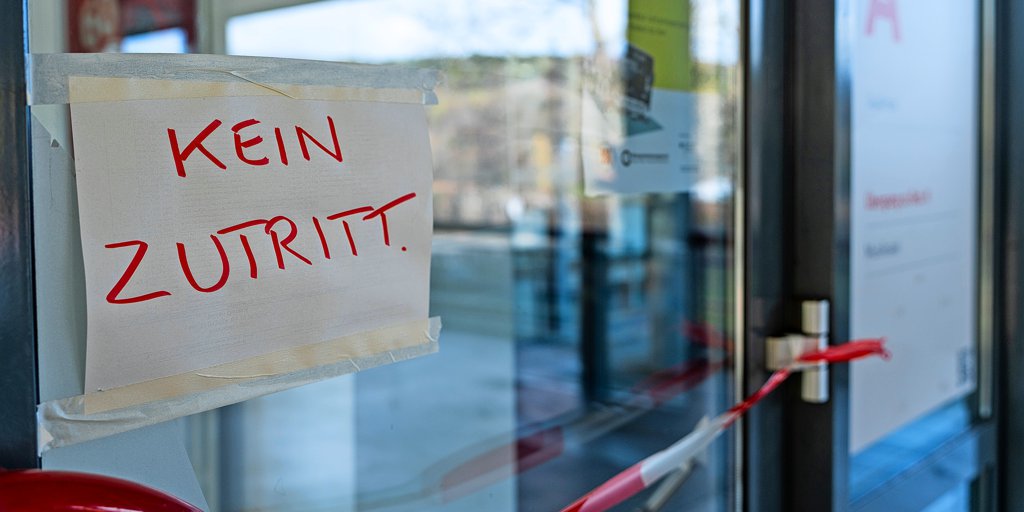 KEIN
ZUTRITT.
A